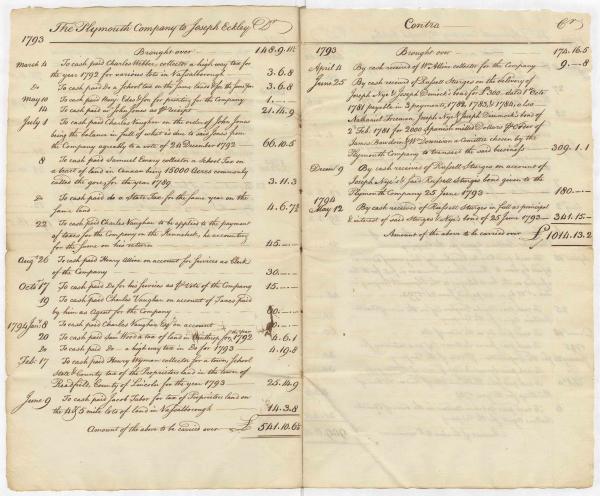 The Plymouth Company to Joseph Eckley Dr
1793
Brought over 148.9.11½
March 4 To cash paid Charles Webber, collector a high way tax for
the year 1792 for various lots in Vassalborough 3.6.8
Do To cash paid Do a School tax on the same Lands & for the same year 3.6.8
May 10 To cash paid Benj: Edes & Son for printing for the Company 1.—.—
14 To cash paid Jno John Jones as 21.14.9
July 1 To cash paid Charles Vaughan on the order of John Jones
being the balance in full of what is due to said Jones from
the Company agreeably to a vote of 24 December 1792 66.10.5
8 To cash paid Samuel Emery collector a School Tax on
a tract of land in Canaan being 15000 Acres commonly
called the gores for the year 1789 3.11.3
Do To cash paid do a State Tax for the same year on the
same land 4.6.7½
22 To cash paid Charles Vaughan to be applied to the payment
of taxes for the Company on the Kennebek, he accounting
for the same on his return 45.—.—
Augt 26 To cash paid Henry Alline on account for services as Clerk
of the Company 30.—.—
Octo 17 To cash paid Do for his services as Vote of the Company 15.—.—
19 To cash paid Charles Vaughan on account of Taxes paid
by him as Agent for the Company 60.—.—
1794 Jany 8 To cash paid Charles Vaughan Esqr on account
20 To cash paid Saml Wood a tax of land in Winthrop for 1792 4.6.1
20 To cash paid Do a high way tax in Do for 1793 4.19.8
Feb: 17 To cash paid Henry Wyman collector for a town, School
State & County tax of the Proprietors land in the town of
Readfield, County of Lincoln for the year 1793 25.4.9
June 9 To cash paid Jacob Taber for tax of Proprietors land on
the 4 & 5 mile lots of land in Vassalborough 14.3.8
Amount of the above to be carried over £ 541.10.6½
Contra Cr
1793 Brought over 174.16.5
April 4 By cash received of Wm Allen collector for the Company 9.—.8
June 25 By cash received of Russell Sturgis on the delivery of
Joseph Nye's & Joseph Dimock's bond for £300. dated 1 Octo
1781 payable in 3 payments, 1782, 1783, & 1784, also
Nathaniel Freeman, Joseph Nye & Joseph Dimmock's bond of
2d Feb: 1781 for 2000 Spanish milled Dollars Order of
James Bowdoin & a committee chosen by the
Plymouth Company to transact the said business 309.1.1
Decemr 9 By cash received of Russell Sturgis on account of
Joseph Nye's & said Russell Sturgis bond given to the
Plymouth Company 25 June 1793 180.—.—
1794
May 12 By cash received of Russell Sturgis in full as principal
& interest of said Sturgis & Nye's bond of 25 June 1793 341.15.—
Amount of the above to be carried over £ 1014.13.2